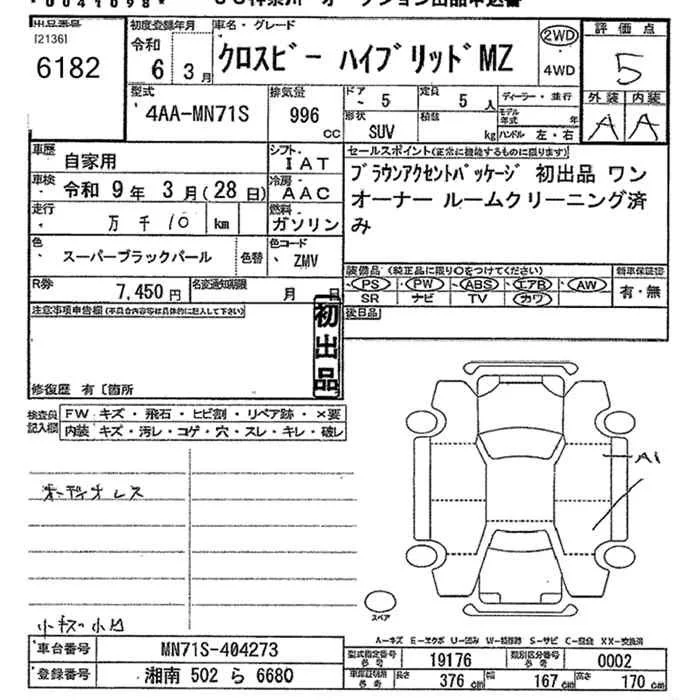 *0041098*
出品番号
[2136]
6182
初度登録年月
令和
6 3月
車名・グレード
クロスビー ハイブリッドMZ
2WD
4WD
評価点
5
外装 内装
A A
型式
4AA-MN71S
排気量
996
cc
ドア
5
定員
5人
形状
SUV
積載
kg
ディーラー・並行
モデル年式 年
ハンドル 左・右
車歴 自家用
シフト IAT
車検 令和 9年 3月(28日)
冷房 AAC
走行 万 千 10 km
燃料 ガソリン
色 スーパーブラックパール
色替
色コード ZMV
R券 7,450円
名変通知期限 月 日
セールスポイント(正常に機能するものに限ります)
ブラウンアクセントパッケージ 初出品 ワン
オーナー ルームクリーニング済
み
装備品 (純正品に限り○をつけてください)
PS・PW・ABS・エアB・AW
SR ナビ TV カワ
新車保証書
有・無
後日品
注意事項申告欄(不具合内容等は具体的に記入して下さい)
初出品
修復歴 有〔箇所
検査員記入欄
FW キズ・飛石・ヒビ割・リペア跡・×要
内装 キズ・汚レ・コゲ・穴・スレ・キレ・破レ
オーディオレス
小キズ 小凹
A1
スペア
A-キズ E-エクボ U-凹み W-補修跡 S-サビ C-腐食 XX-交換済
車台番号 MN71S-404273
登録番号 湘南 502 ら 6680
型式指定番号 参考 19176
類別区分番号 参考 0002
車庫証明用 参考 長さ 376cm 幅 167cm 高さ 170cm